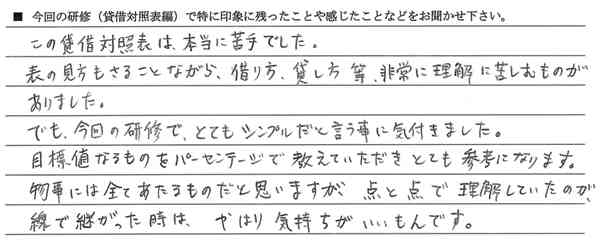 ■ 今回の研修（貸借対照表編）で特に印象に残ったことや感じたことなどをお聞かせ下さい。
この貸借対照表は、本当に苦手でした。
表の見方もさることながら、借り方、貸し方 等、非常に理解に苦しむものが
ありました。
でも、今回の研修で、とてもシンプルだと言う事に気付きました。
目標値なるものをパーセンテージで教えていただきとても参考になります。
物事には全てあたるものだと思いますが、点と点で理解していたのが、
線で継がった時は、やはり気持ちがいいもんです。